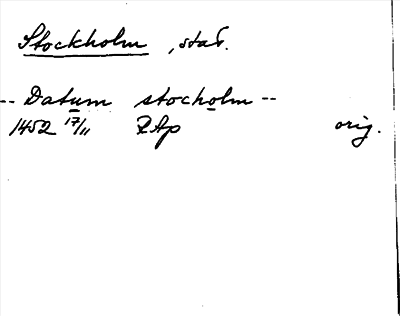 Stockholm, stad.
-- Datum stocholm --
1452 17/11 RAp orig.